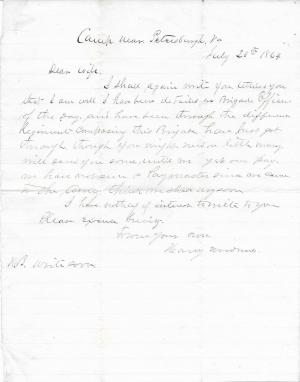 Camp near Petersburgh, Va
July 20th 1864
Dear wife,
I shall again write you letting you
that I am well I has been detailed as Brigade Officer
of the Day, and have been through the different
Regiment Composing this Brigade have just got
through though You might need a little money
will send you some we get our pay.
we have not seen a Paymaster since we came
to the
I have nothing of interest to write to you
Please excuse
From your own
Harry
write soon